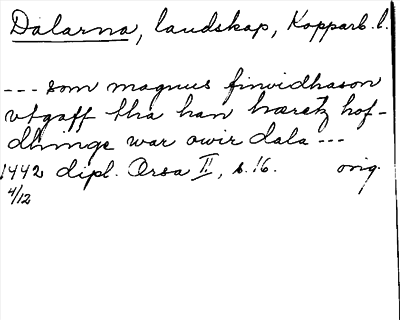 Dalarna, landskap, Kopparb. l.
--- som magnus finvidhason
vtgaff tha han hæretz höf-
dhinge war owir dala ---
1442 dipl. Orsa II, s. 16. orig.
4/12